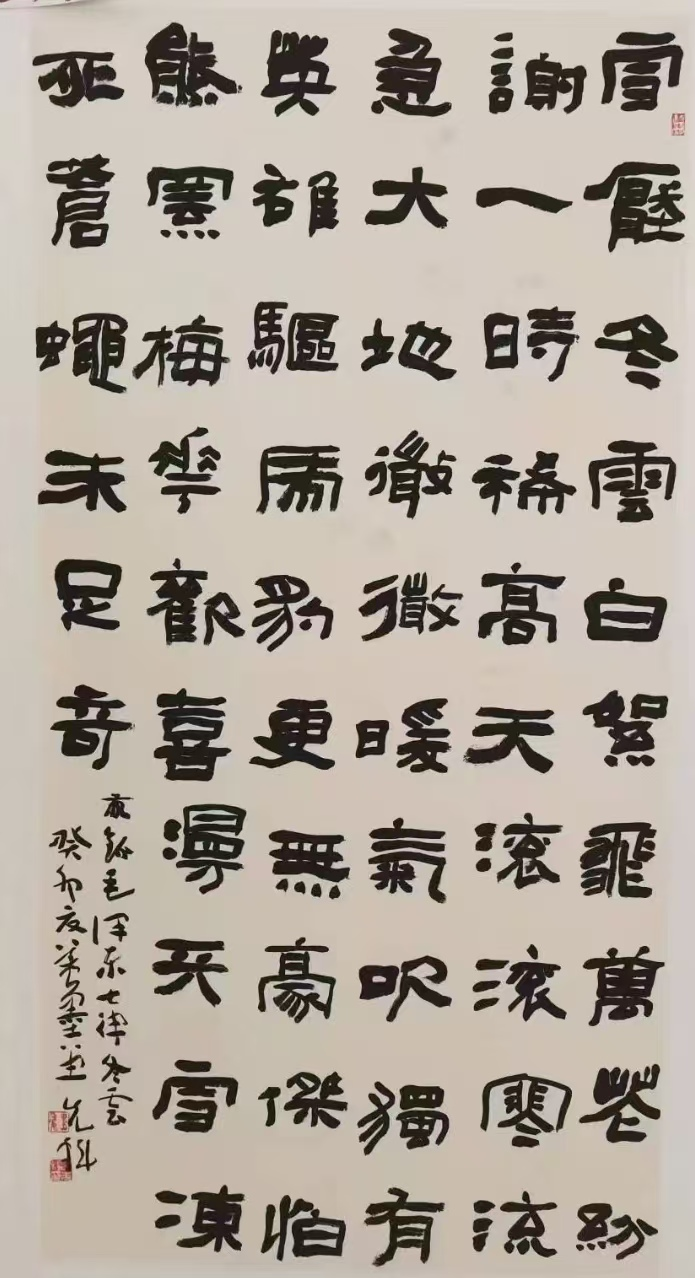 雪壓冬雲白絮飛萬花紛
謝一時稀高天滾滾寒流
急大地微微暖氣吹獨有
英雄驅虎豹更無豪傑怕
熊羆梅花歡喜漫天雪凍
死蒼蠅未足奇
敬錄毛澤東七律冬雲
癸卯夏